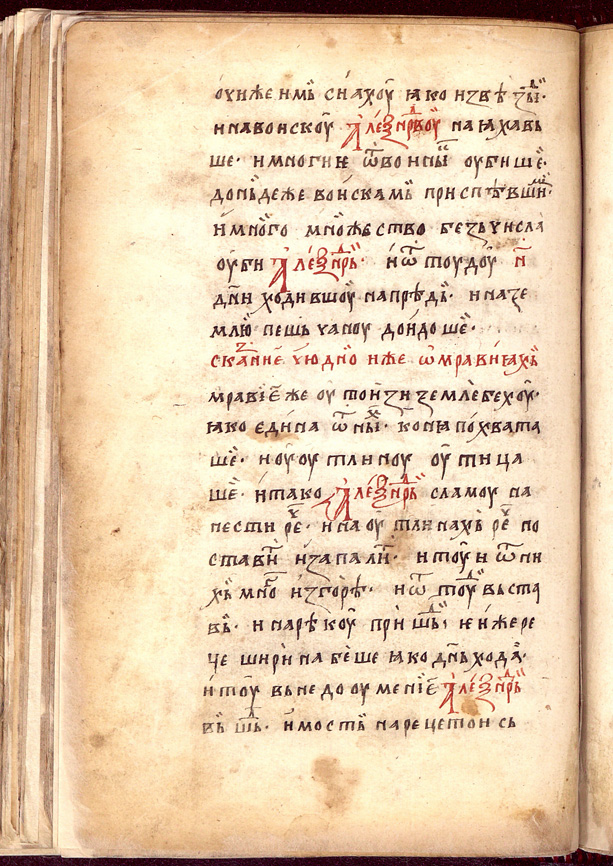 оучиже имь сиꙗхоу ꙗко извѣзды·
и на воискоу Алеѯнⷣрвоу на ꙗхавь
ше· и многиѥ ѿ вои ины оубише·
доньдеже воискамь приспѣвшиⷨ·
и много множьство безь числа
оуби Алеѯнⷣрь· и ѿ тоудоу н҃
дн҃и ходившоу напрѣдь· и на зе
млю пешь чаноу доидоше·
сказание чюдно иже ѡ мравиꙗхь
мравіѥ же оу тоизи земле бехоу·
ꙗко едина ѿ ниⷯ· конꙗ похвата
ше· и оу оутлиноу оутица
ше· и тако Алеѯнⷣрь сламоу на
нести реⷱ· и на оутлинахь реⷱ по
ставити и запалити· и тоу и ѿ ни
хь много изгорѣ· и ѿ тоуⷣ вьста
вь· и на рѣкоу пришⷣь, ѥиже ре
че ширина беше ꙗко дн҃ь хода·
и тоу вь недооумениѥ Алеѯнⷣрь
вь шⷣь· и мость на реце тои сь